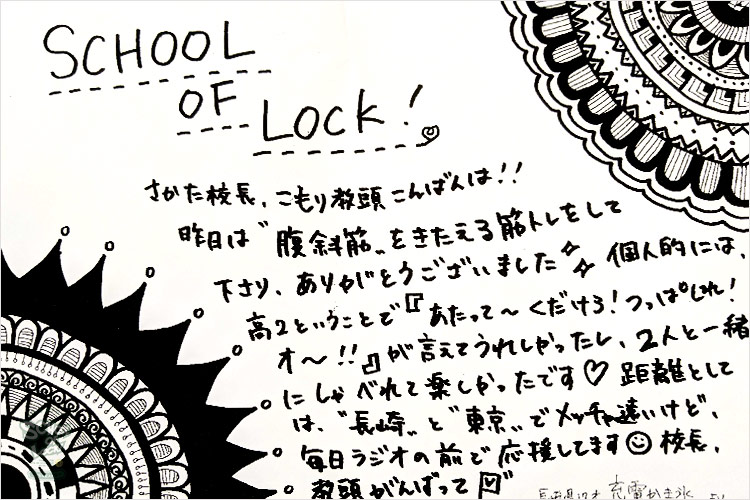 SCHOOL
OF
LOCK!
さかた校長、こもり教頭こんばんは!!
昨日は〝腹斜筋〟をきたえる筋トレをして
下さり、ありがとうございました 個人的には、
高2ということで『あたって〜くだけろ!つっぱしれ!
オ〜!!』が言えてうれしかったし、2人と一緒
にしゃべれて楽しかったです♡ 距離として
は、〝長崎〟と〝東京〟でメッチャ遠いけど、
毎日ラジオの前で応援してます☺ 校長、
教頭がんばって